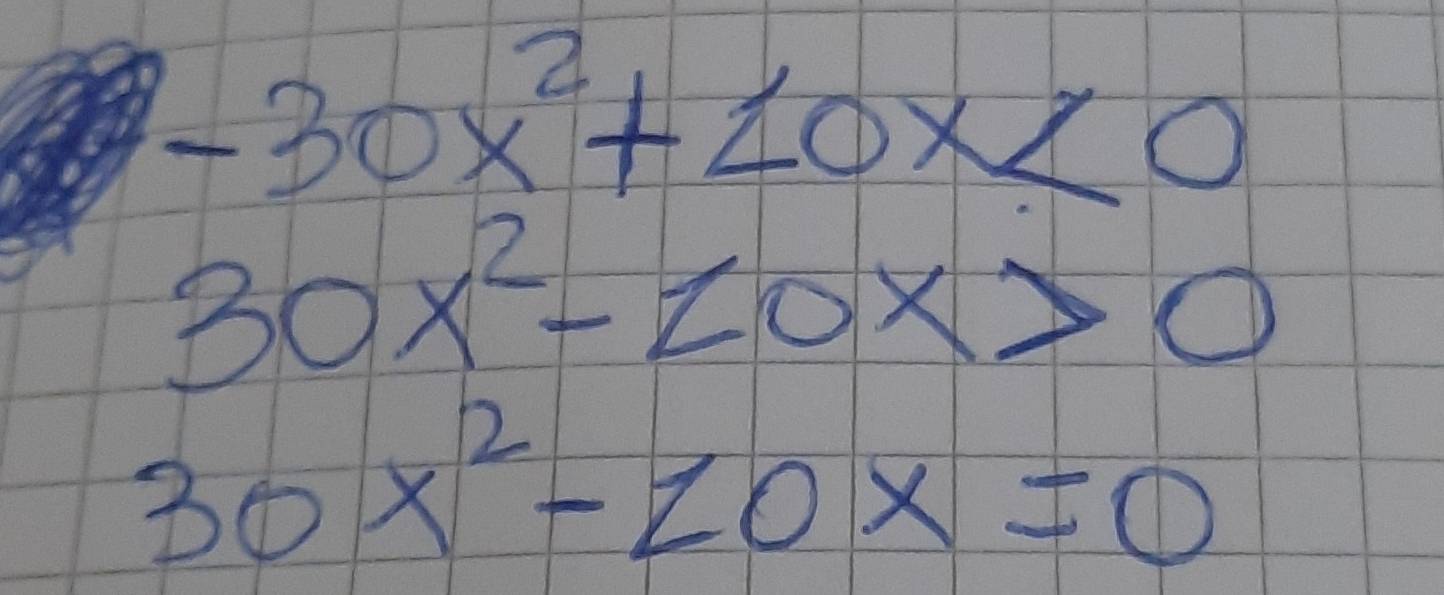 -30x²+10x<0
30x²-10x>0
30x²-10x=0